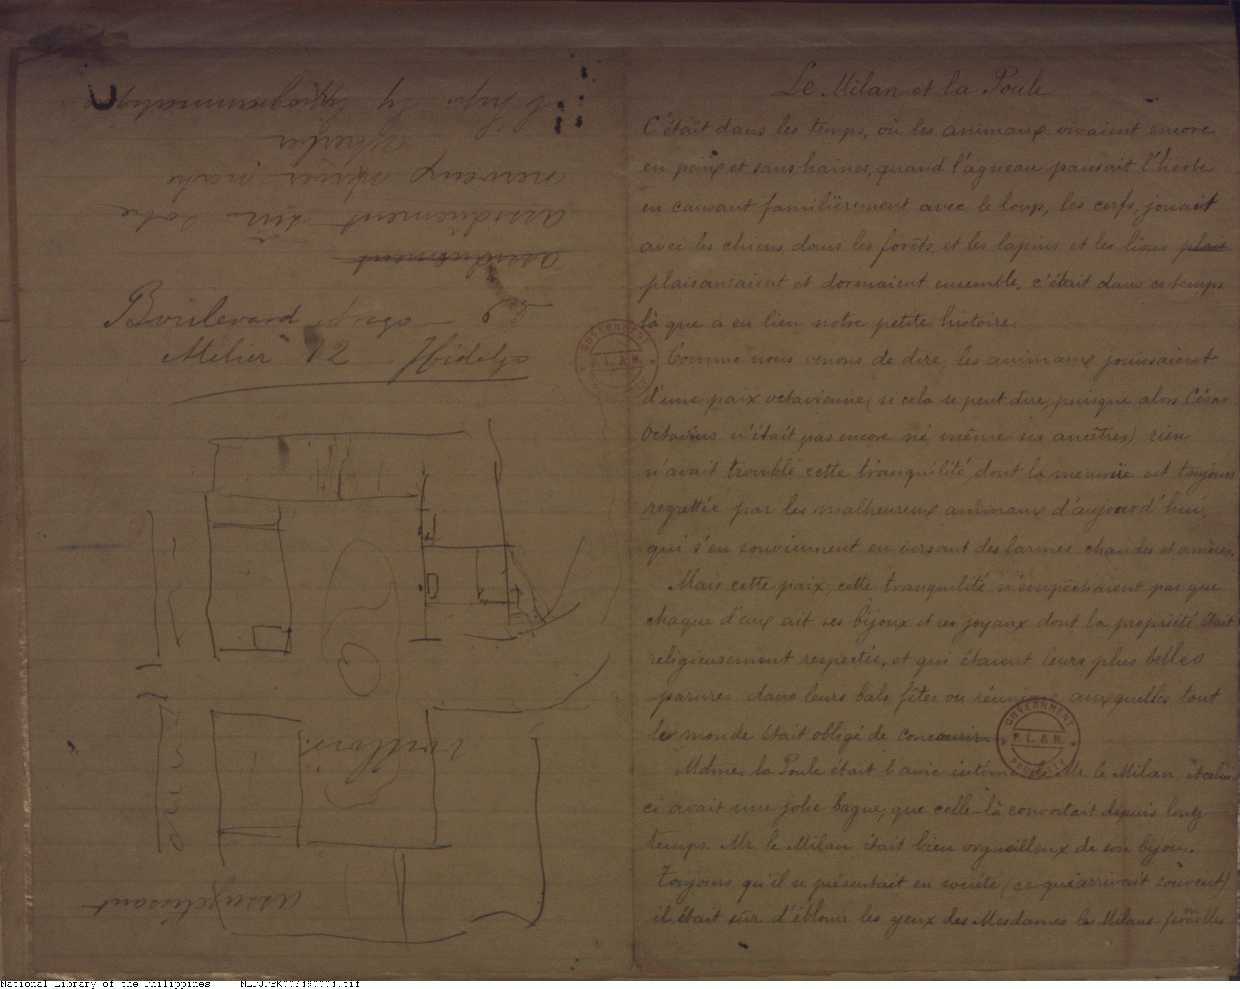 Le Milan et la Poule
C'était dans les temps, où les animaux vivaient encore
en paix et sans haines, quand l'agneau paissait l'herbe
en causant familièrement avec le loup, les cerfs jouait
avec les chiens dans les forêts et les lapins et les lions plait
plaisantaient et dormaient ensemble, c'était dans ce temps
là que a eu lieu notre petite histoire.
Comme nous venons de dire, les animaux jouissaient
d'une paix octavienne (si cela se peut dire, puisque alors César
Octavius n'était pas encore né même ses ancêtres) rien
n'avait troublé cette tranquilité dont la memoire est toujours
regrettée par les malheureux animaux d'aujourd'hui,
qui s'en souviennent en versant des larmes chaudes et amères.
Mais cette paix, cette tranquilité n'empêchaient pas que
chaque d'eux ait ses bijoux et ses joyaux dont la propriété était
religieusement respectée, et qui étaient leurs plus belles
parures dans leurs bals, fêtes ou réunions auxquelles tout
le monde était obligé de concourir.
Mdme la Poule était l'amie intime de Mr le Milan,
ci avait une jolie bague, que celle-là convoitait depuis long
temps. Mr. le Milan était bien orgueilleux de son bijou.
Toujours qu'il se présentait en société (ce qui arrivait souvent)
il était sûr d'éblouir les yeux des Mesdames les Milans femelles
Boulevard
Atelier 12 Hidalgo
assidument
assidument
nerveux
assujetissant
GOVERNMENT
P. L. & M.
PROPERTY
GOVERNMENT
P. L. & M.
PROPERTY
National Library of the Philippines